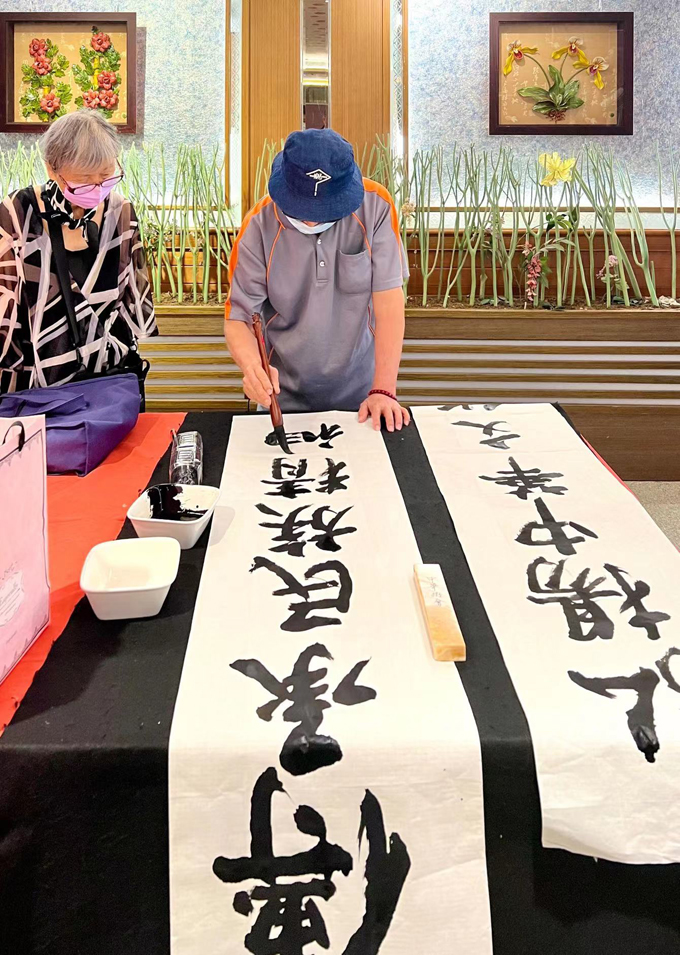 弘揚中華文
傳承民族精神